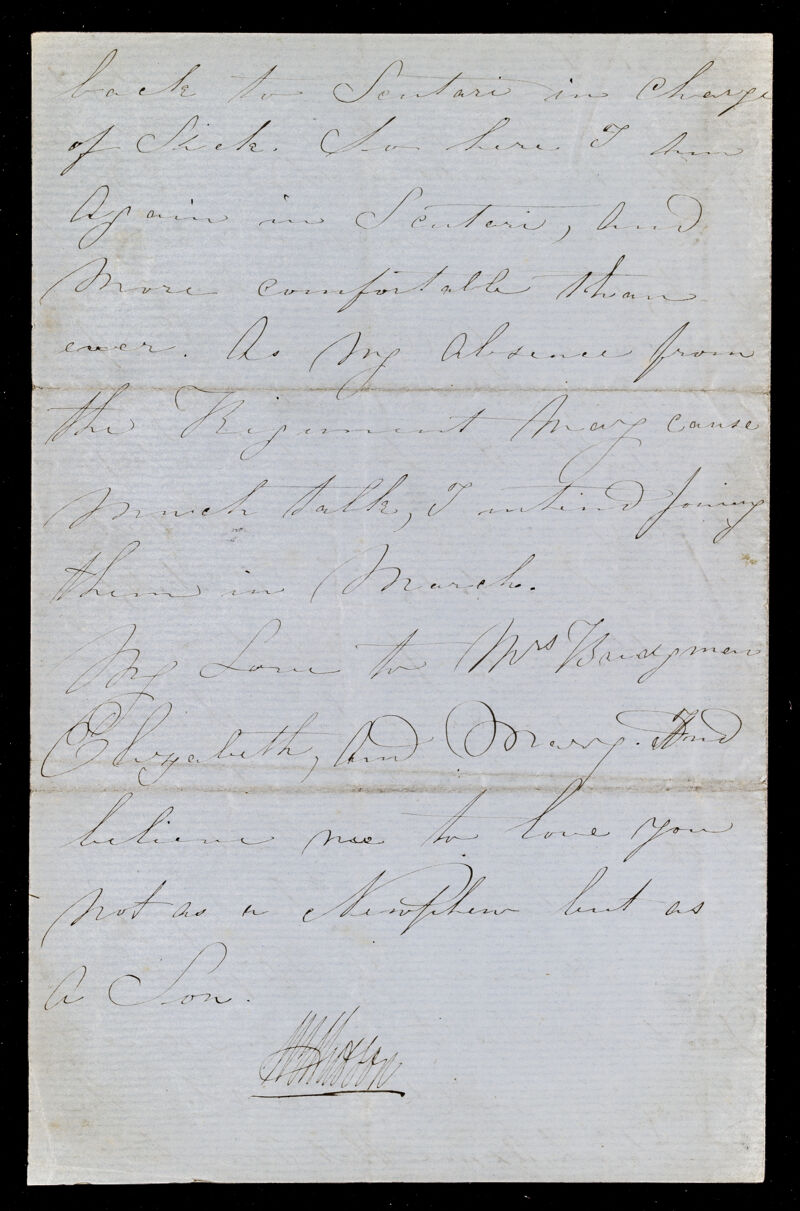 back to Scutari in charge
of Sick. So here I am
Again in Scutari, And
More comfortable than
ever. As My Absence from
the Regiment May cause
Much talk, I intend Joining
them in March.
My Love to Mrs Bridgman
Elizabeth, And Mary. And
believe me to love you
not as a Newphew but as
A Son.